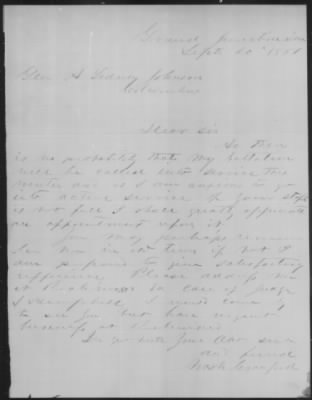 Grand Junction
Sept 20th 1861
Gen A Sidney Johnson
Columbus
Dear Sir
As there
is no probability that my Battalion
will be called into service this
winter and as I am anxious to go
into active service if your staff
is not full I shall greatly appreciate
an appointment upon it
You may perhaps remem
me in if not I
am prepared to give satisfactory
refference Please address me
at Richmond Va Care of Judge
J A Campbell I would come
to see you but have urgent
business at Richmond
your obt serv
and friend